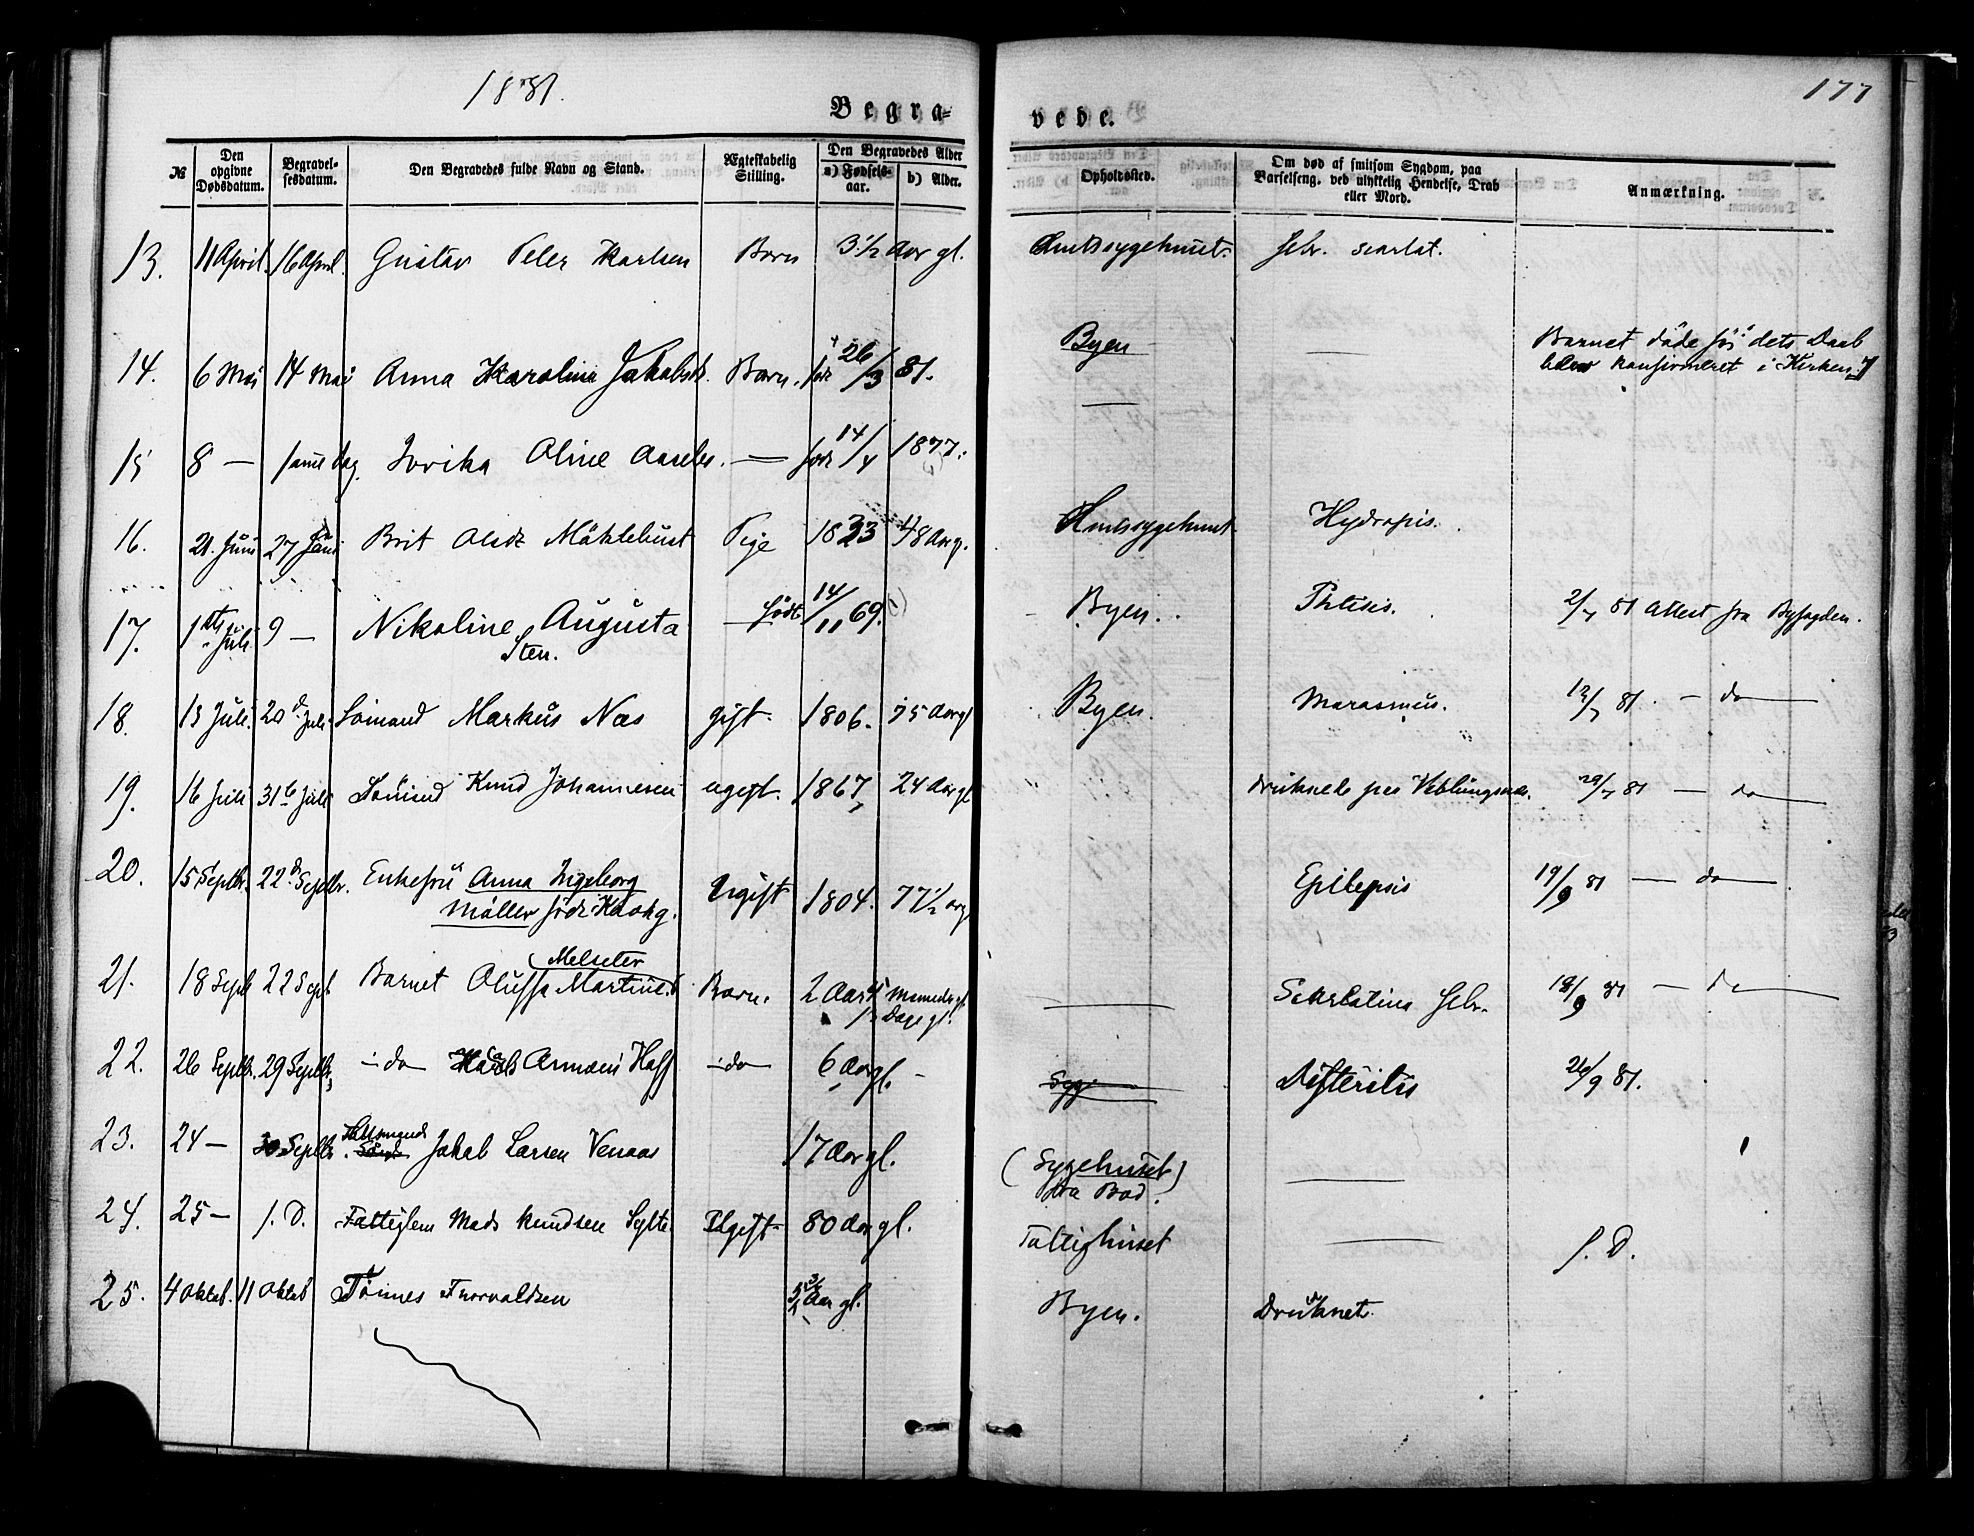 1881.
177
Begra-
vede.
№
Den opgivne Dødsdatum.
Begravel-sesdatum.
Den Begravedes fulde Navn og Stand.
Ægteskabelig Stilling.
Den Begravedes Alder
a) Fødsels-aar.
b) Alder.
Opholdssted.
Om død af smitsom Sygdom, paa Barselseng, ved ulykkelig Hendelse, Drab eller Mord.
Anmærkning.
13. 11 April. 16 April. Gustav Peter Karlsen Barn 3½ Aar gl. Amtssygehuset. febr. scarlat.
14. 6 Mai 14 Mai Anna Karoline Jakobsd. Barn. født 26/3 81. Byen — Barnet döde før dets Daab
blev konfirmeret i Kirken
15 8 — samme dag. Oline — født 14/4 1877. —
16. 21. Juni 27 Juni Brit Olsdr Pige 1833 48 Aar g. Amtssygehuset Hydropis.
17. 1ste Juli 9 — Nikoline Augusta — født 14/11 69. Byen. Phtisis. 2/7 81 Attest fra Byfogden.
Sten.
18. 13 Juli. 20 d. Juli Sömand Markus Næs gift. 1806. 75 Aar gl Byen. Marasmus. 13/7 81. — do —
19. 16 Juli 31 Juli Sömand Knud Johannesen ugift. 1867, 24 Aar gl druknede paa Veblungsnæs. 29/7 81 — do —
20. 15 Septbr. 22 d. Septbr. Enkefru Anna Ingeborg Ugift 1804. 77½ aar gl Epilepsis 19/9 81 — do —
Møller født
21. 18 Sept 22 Sept Barnet Martine Barn. 2 Aar 5 Maaneder gl. — Skarlatina febr. 18/9 81 — do —
Melseter
Dage gl.
22. 26 Septbr. 29 Septbr. — do — Hoff — do — 6 Aar gl. — Syg Difteritis 26/9 81.
23. 24 — 30 Septbr. Jakob Larsen Venaas 17 Aar gl. (Sygehuset) —
fra Bod.
24. 25 — s. D. Fattiglem Mads Knudsen Sylte Ugift 80 Aar gl. Fattighuset — s. D.
25. 4 Oktob. 11 Oktob Tönnes Thorvaldsen Aar gl. Byen. Druknet.